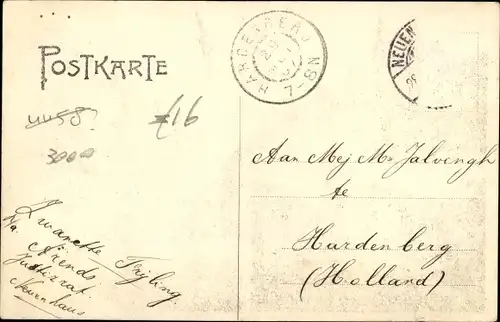 POSTKARTE
HARDENBERG
7-8N
NEUEN
4458
3000
£16
Aan Mej Mr Jalvingh
te
Hardenberg
(Holland)
Zwanette Frÿling
Arends
Justizrat
Neuenhaus